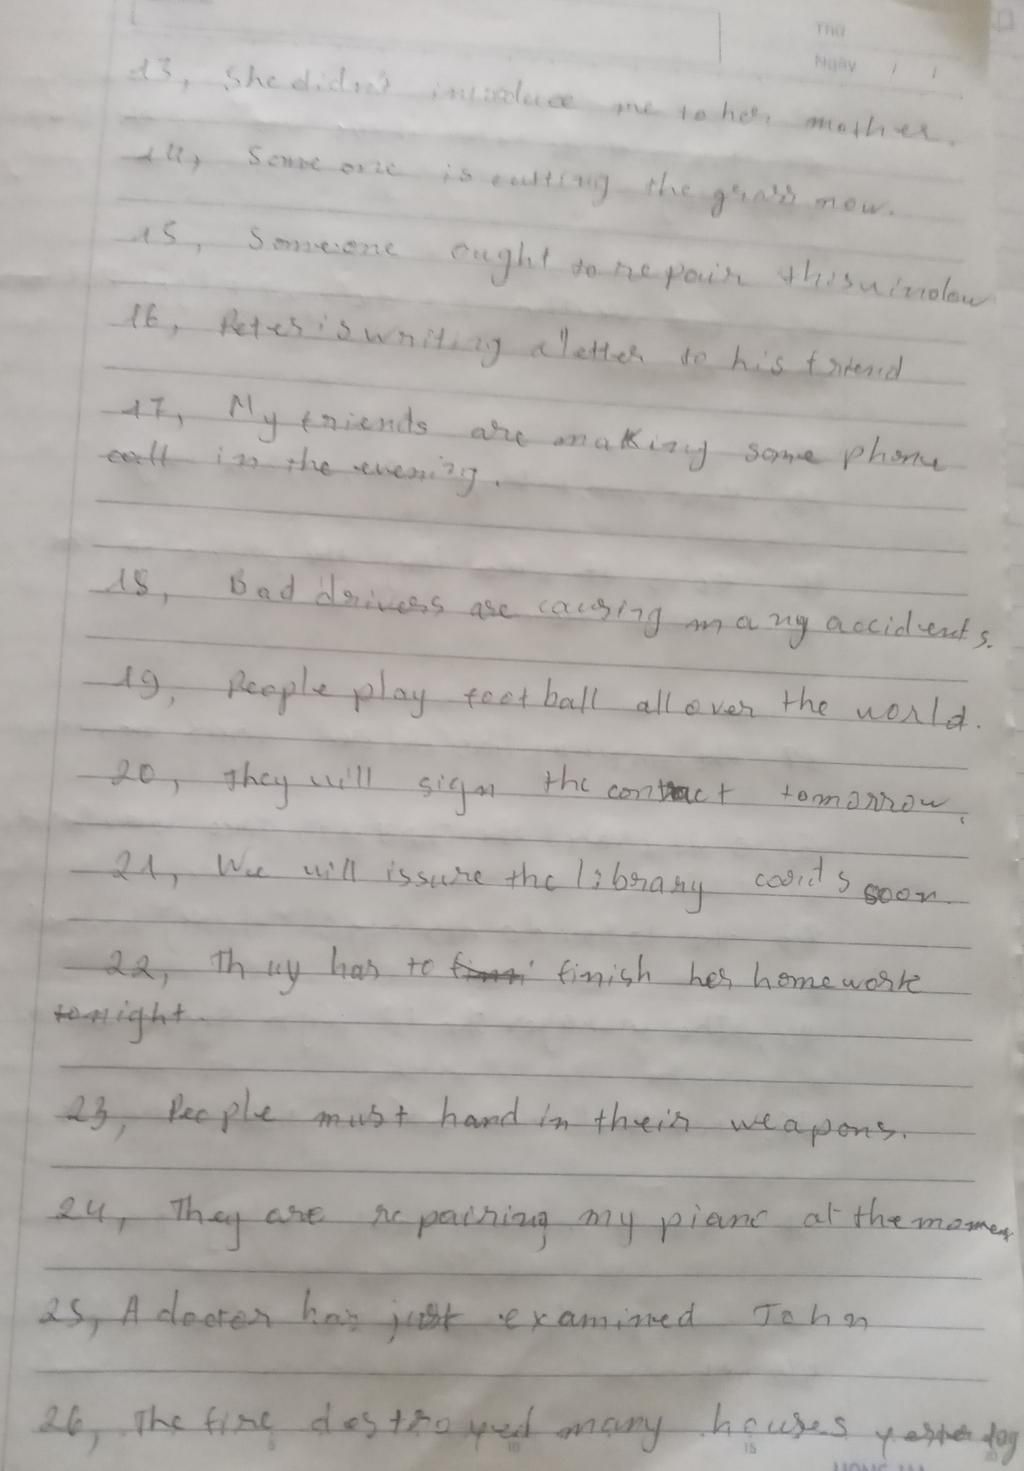 Thứ
Ngày / /
13, She didn't introduce me to her mother.
14, Some one is cutting the grass now.
15, Someone ought to repair this window
16, Peter is writing a letter to his friend
17, My friends are making some phone
call in the evening.
18, Bad drivers are causing many accidents.
19, People play football all over the world.
20, They will sign the contract tomorrow.
21, We will issure the library cards soon.
22, Thuy has to finish her homework
tonight.
23, People must hand in their weapons.
24, They are repairing my piano at the moment
25, A doctor has just examined John
26, The fire destroyed many houses yesterday
5 10 15 20